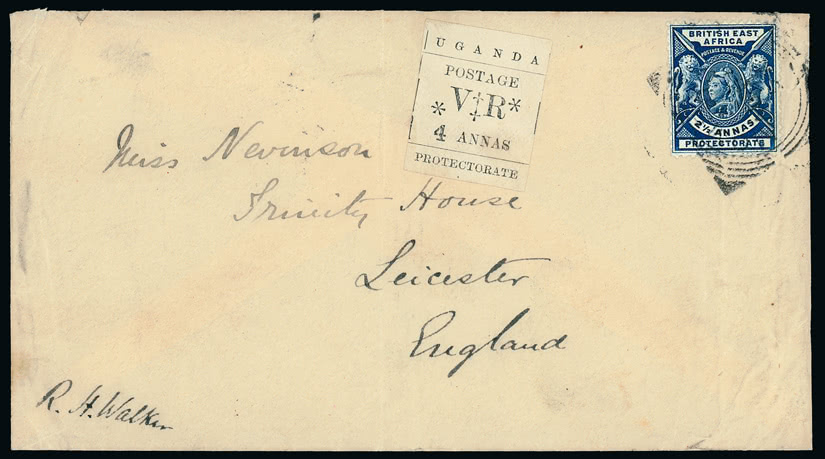 UGANDA
POSTAGE
V‡R
4 ANNAS
PROTECTORATE
BRITISH EAST
AFRICA
POSTAGE & REVENUE
2½ ANNAS
PROTECTORATE
Miss Nevinson
Trinity House
Leicester
England
R. H. Walker